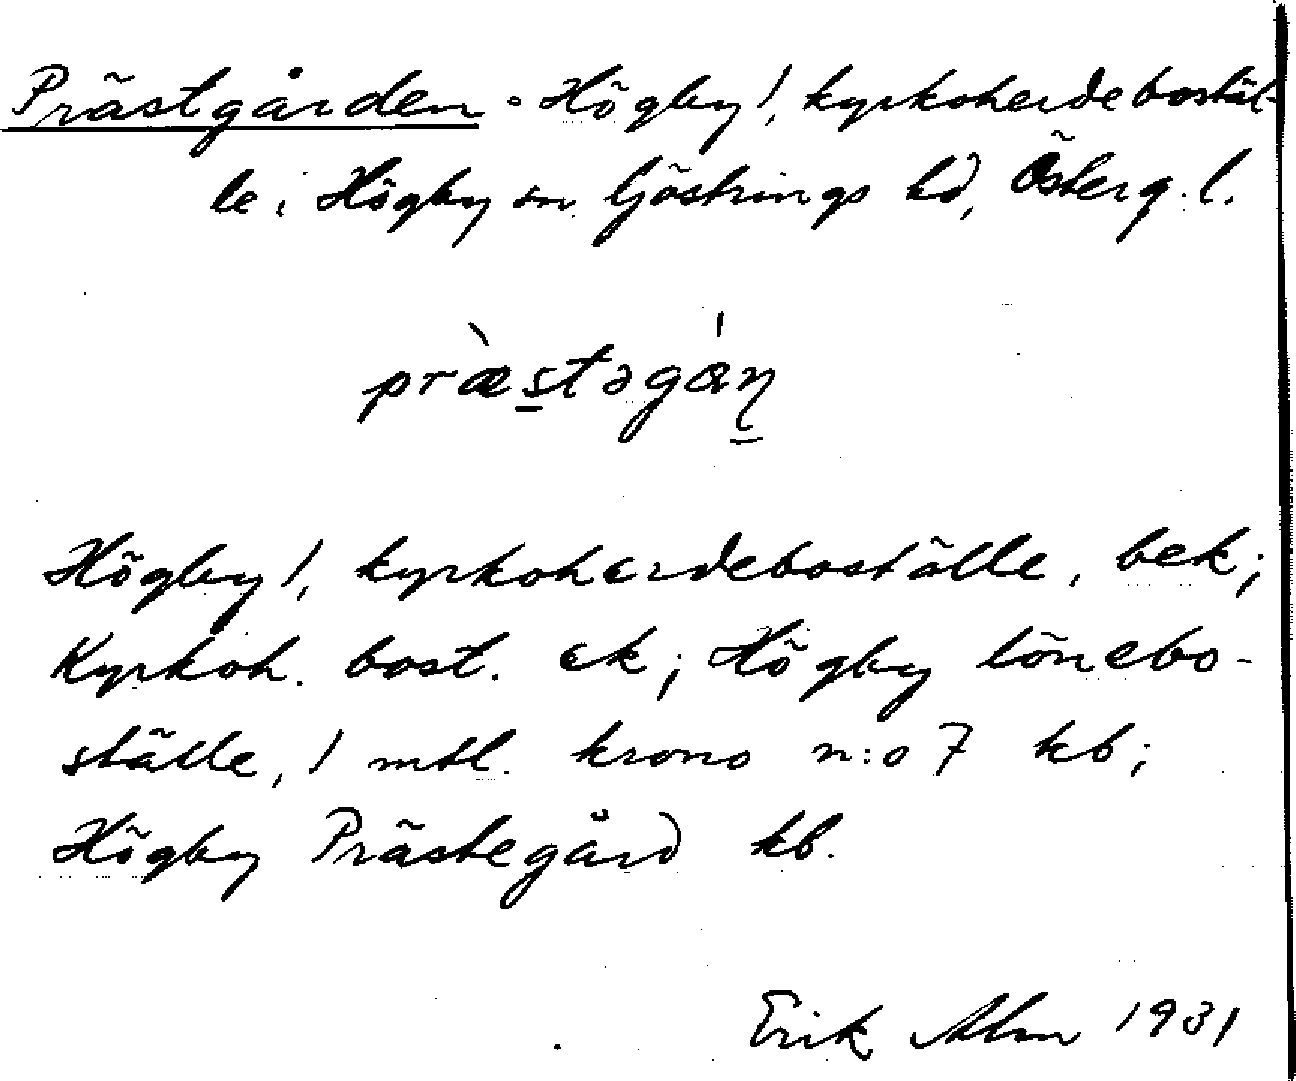 Prästgården = Högby 1, kyrkoherdeboställ-
le i Högby sn Göstrings hd, Österg. l.
pr̀æs̱təgɑ́ṉ
Högby 1, kyrkoherdeboställe, bek;
Kyrkoh. bost. ek; Högby lönebo-
ställe, 1 mtl. krono n:o 7 kb;
Högby Prästegård kb.
Erik Alm 1931